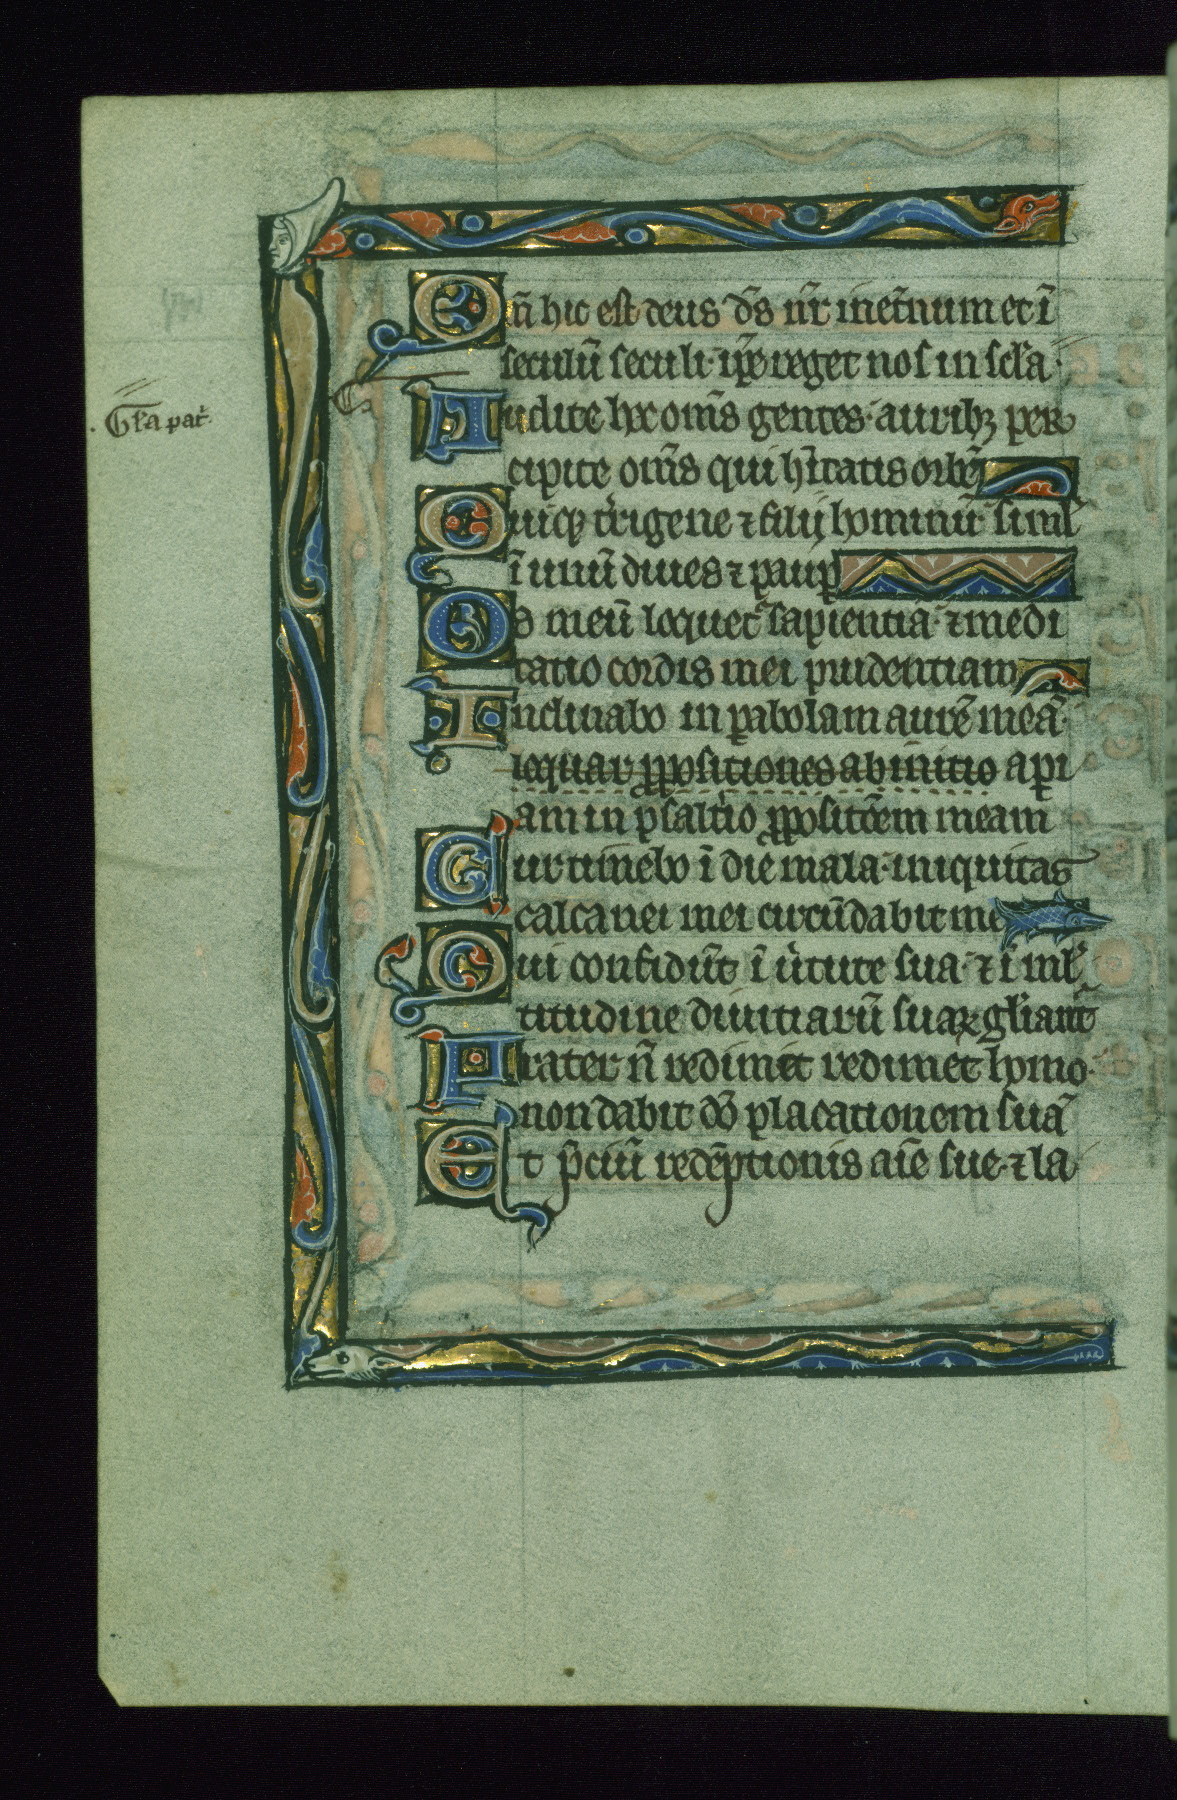 Qm̄ hic est deus dˀs nr̄ inet̄num et ī
seculū seculi· ip̄e reget nos in scl̄a·
Gl̄a pat̄.
Audite hec om̄s gentes· aurib; per
cipite om̄s qui hītatis orbē
Quiq; t̄rigene ⁊ filij hominū simł
ī unū diues ⁊ paup̄
Os meū loquet᷑ sapientiā· ⁊ medi
tatio cordis mei prudentiam
Inclinabo in p̄abolam aurē meā·
loquar p̄positiones ab initio ap̄i
am in psalt̄io p̄positōem meam
Cur timebo ī die mala· iniquitas
calcanei mei circūdabit me
Qui confidūt ī ūtute sua· ⁊ ī mł
titudine diuitiarū suaꝝ gl̄iant᷑
Frater n̄ redimit redimet homo·
non dabit dō placationem suā
Et p̄ciū redēptionis aīe sue· ⁊ la